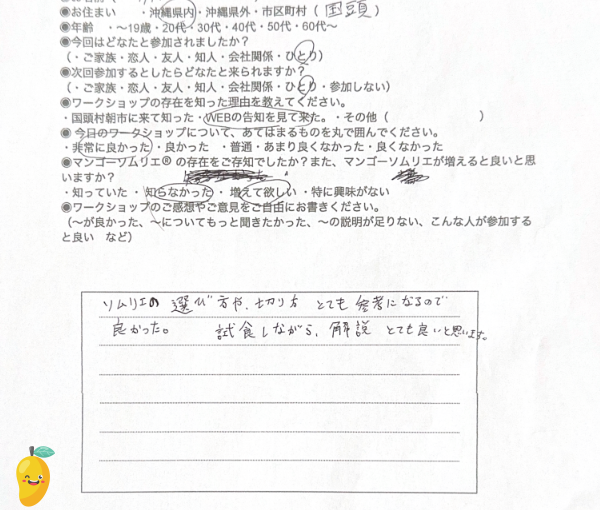 ◉お住まい ・沖縄県内・沖縄県外・市区町村（ 国頭 ）
◉年齢 ・～19歳・20代・30代・40代・50代・60代～
◉今回はどなたと参加されましたか？
（・ご家族・恋人・友人・知人・会社関係・ひとり）
◉次回参加するとしたらどなたと来られますか？
（・ご家族・恋人・友人・知人・会社関係・ひとり・参加しない）
◉ワークショップの存在を知った理由を教えてください。
・国頭村朝市に来て知った・WEBの告知を見て来た。・その他（ ）
◉ 今日のワークショップについて、あてはまるものを丸で囲んでください。
・非常に良かった・良かった ・普通・あまり良くなかった・良くなかった
◉マンゴーソムリエ®の存在をご存知でしたか？また、マンゴーソムリエが増えると良いと思
いますか？
・知っていた・知らなかった・ 増えて欲しい・特に興味がない
◉ワークショップのご感想やご意見をご自由にお書きください。
（～が良かった、～についてもっと聞きたかった、～の説明が足りない、こんな人が参加する
と良い など）
ソムリエの 選び方や、切り方 とても 参考になるので
良かった。 試食しながら、解説 とても良いと思います。